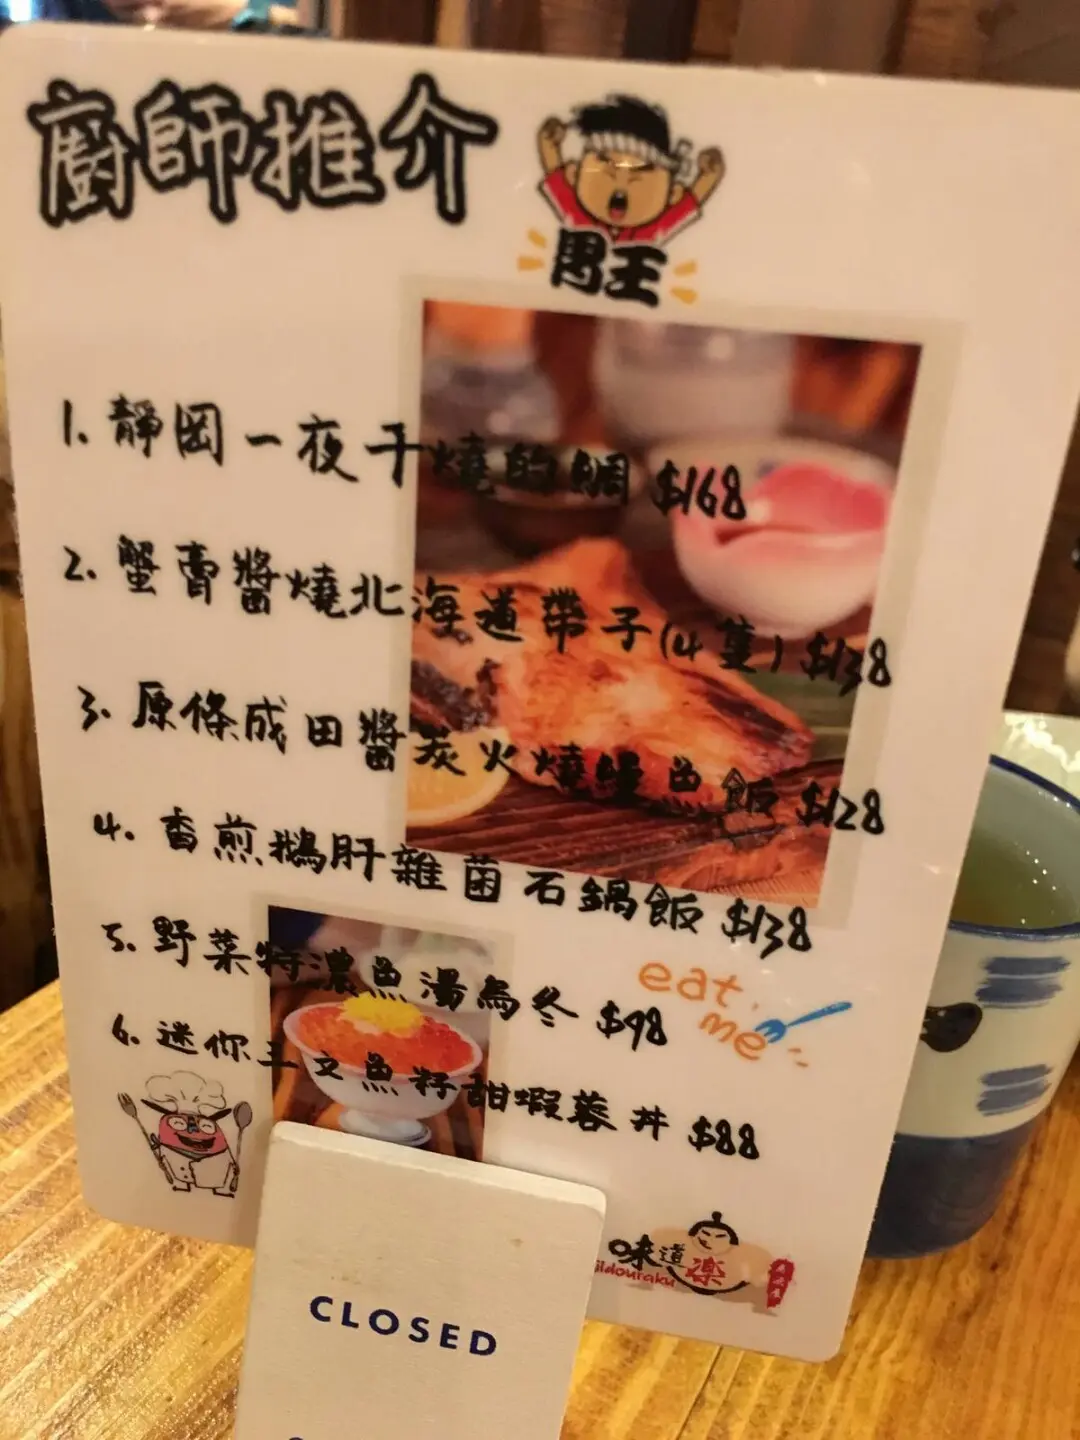 廚師推介
男王
1. 靜岡一夜干燒的鯛 $168
2. 蟹膏醬燒北海道帶子(4隻) $138
3. 原條成田醬炭火燒鰻魚飯 $128
4. 香煎鵝肝雜菌石鍋飯 $138
5. 野菜特濃魚湯烏冬 $98
eat me
6. 迷你三文魚籽甜蝦蓉丼 $88
味道楽
CLOSED